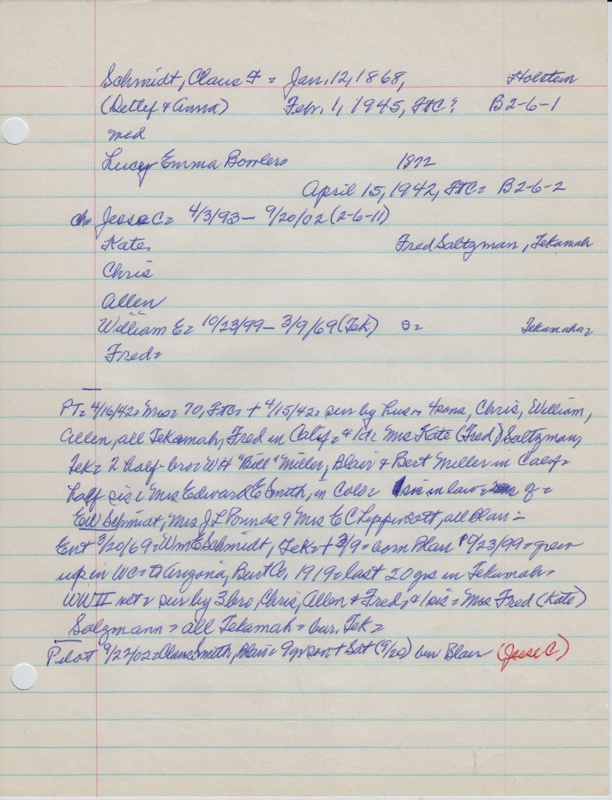 Schmidt, Claus F = Jan. 12, 1868, Holstein
(Detlef & Anna) Febr. 1, 1945, FtC? B2-6-1
med
Lucy Emma Bowlers 1872
April 15, 1942, FtC= B2-6-2
ch= Jesse C= 4/3/93 - 9/20/02 (2-6-11)
Kate, Fred Saltzman, Tekamah
Chris
Allen
William E= 10/23/99 - 3/9/69 (Tek) Tekamah=
Fred=
PT= 4/16/42= Mrs= 70, FtC= + 4/15/42= sur by hus= 4 sons, Chris, William,
Allen, all Tekamah, Fred in Calif= & 1 d= Mrs Kate (Fred) Saltzman,
Tek= 2 half-bro= WH "Bill" Miller, Blair & Bert Miller in Calif=
half sis= Mrs Edward E Smith, in Colo= sis in law =
Ed Schmidt, Mrs J L Pounds & Mrs E C Lippincott, all Blair =
Ent 3/20/69= Wm E Schmidt, Tek= + 3/9= born Blair 9/23/99= grew
up in WC= to Arizona, Burt Co, 1919= last 20 yrs in Tekamah=
WW II vet= sur by 3 bro, Chris, Allen & Fred= & 1 sis= Mrs Fred (Kate)
Salzmann = all Tekamah = bur. Tek=
Pilot 9/22/02= Claus Smith, Blair= 9 yr son + Sat (9/20) bur Blair (Jesse C.)